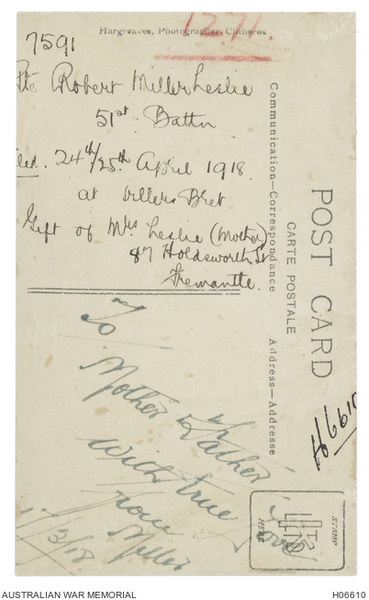 Hargreaves, Photographer, Clitheroe
1371.
7591
Pte Robert Miller Leslie
51st Battn
led. 24th/25th April 1918.
at Villers Bret.
Gift of Mrs Leslie (Mother)
87 Holdsworth St
Fremantle.
Communication—Correspondance
Address—Addresse
CARTE POSTALE
POST CARD
H6610
To
Mother & Father
With true love
from
Miller
/3/18
STAMP
HERE
AUSTRALIAN WAR MEMORIAL
H06610